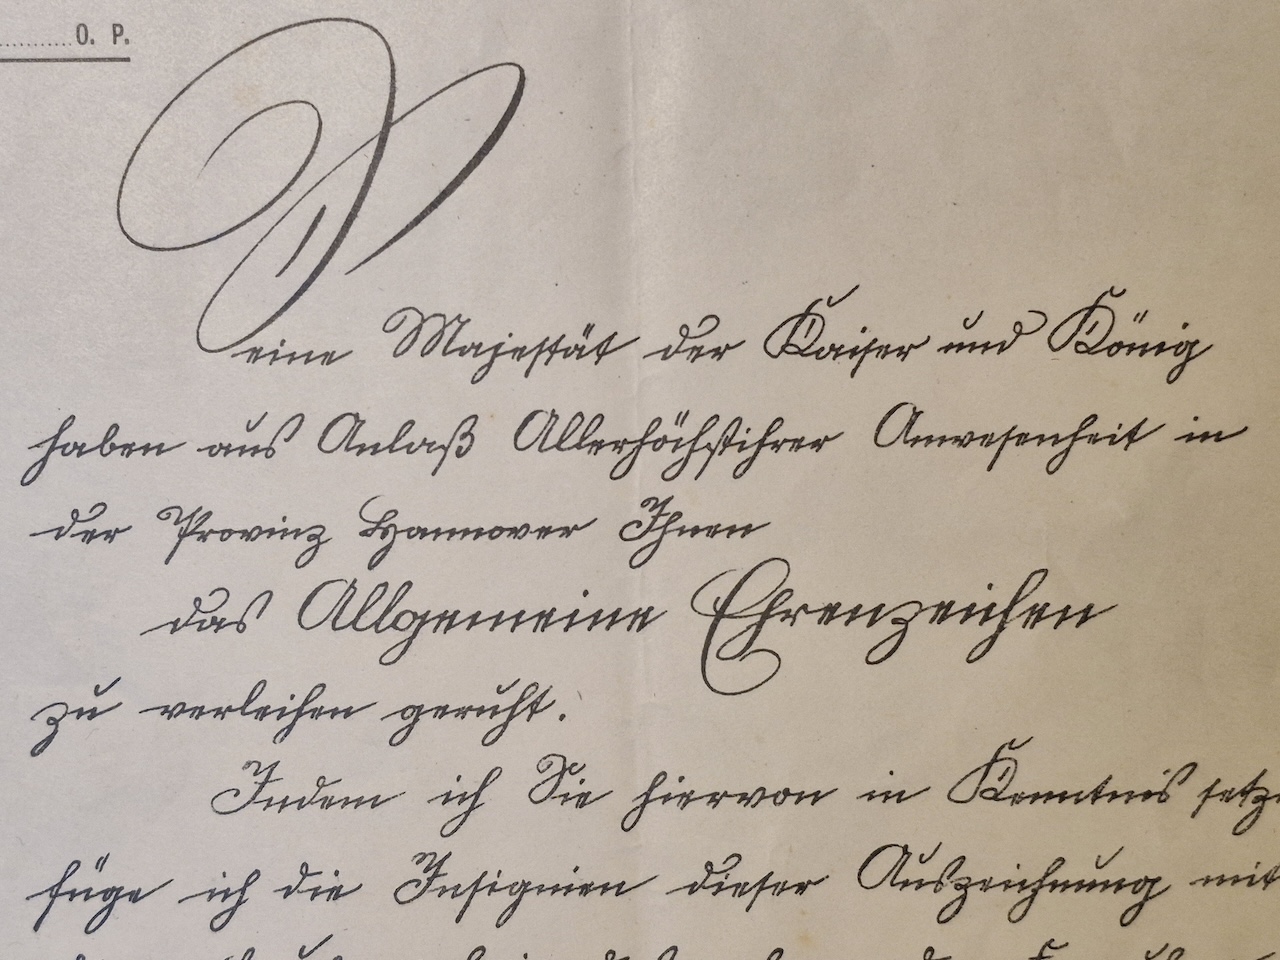 O. P.
Seine Majestät der Kaiser und König
haben aus Anlaß Allerhöchstihrer Anwesenheit in
der Provinz Hannover Ihnen
das Allgemeine Ehrenzeichen
zu verleihen geruht.
Indem ich Sie hiervon in Kenntnis setze
füge ich die Insignien dieser Auszeichnung mit